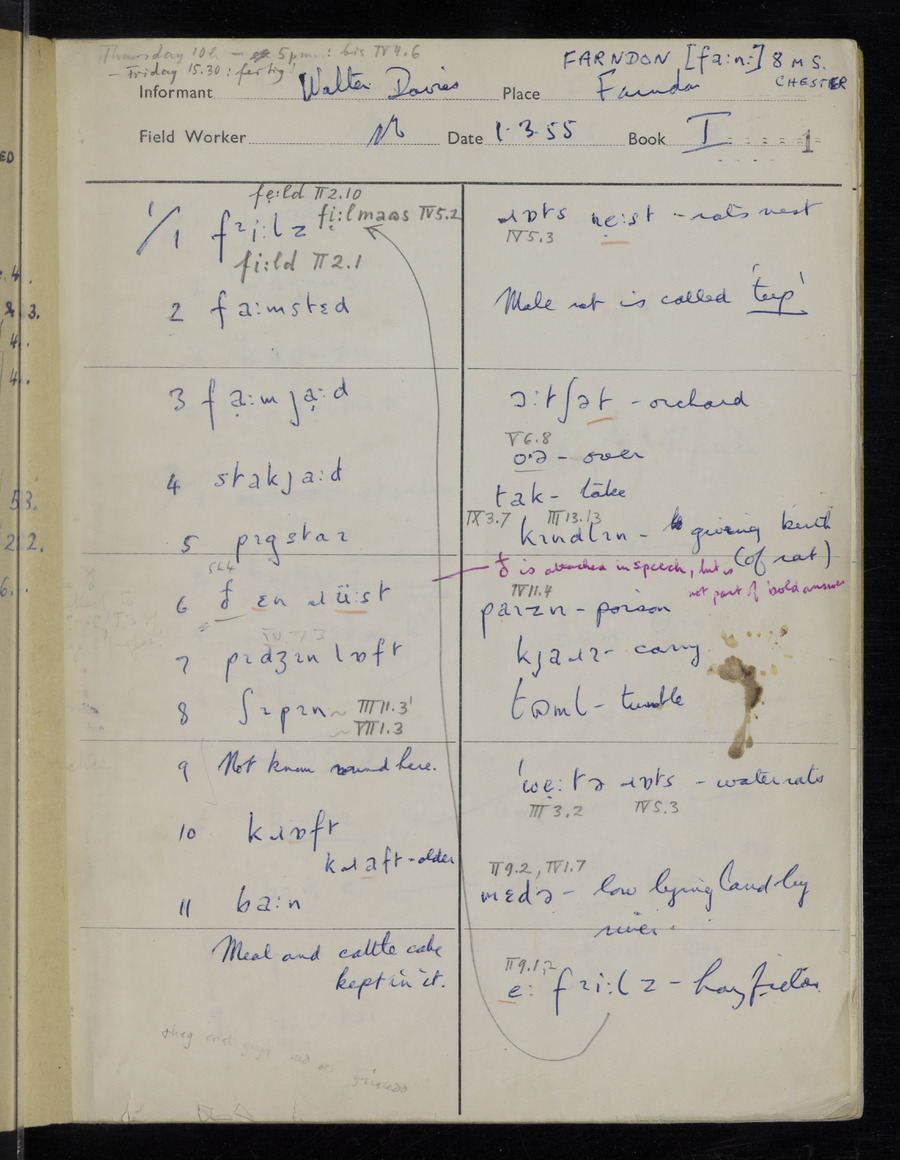 Thursday 10h. — 5pm.: bis IV 4.6
— Friday 15.30: fertig!
FARNDON [fa:n:] 8 M S.
CHESTER
Informant Walter Davies Place Farndon
Field Worker Date 1.3.55 Book I 1
fẹ:ld II 2.10
1/1 fɪi:lz fi̩:lmaɷs IV 5.2
fi:ld II 2.1
2 fa:mstɛd
3 fa̩:mja̩:d
4 stakja:d
5 pɪgstaɪ
5 4.4
6 ðɛn ɹüːst
IV 7.3
7 pɪdʒɪn lɒft
8 ʃɪpɪn ~ III 11.3'
~ VII 1.3
9 Not known round here.
10 kɹɒft
kɹaft - older
11 ba:n
Meal and cattle cake
kept in it.
they
ɹɒts nẹ:st - rats nest
IV 5.3
Male rat is called 'tup'
ɔ:tʃət - orchard
V 6.8
o·ə - over
tak - take
IX 3.7 III 13.13
kɪndlɪn - giving birth
(of rat)
ð is attached in speech, but is
not part of 'bold answer
IV 11.4
paɪzn - poison
kjaɹɪ - carry
tɷml - tumble
'wẹ:tə ɹɒts - water rats
III 3.2 IV 5.3
II 9.2, IV 1.7
mɛdə - low lying land by
river.
II 9.1,2
e: fɪi:lz - hay fields